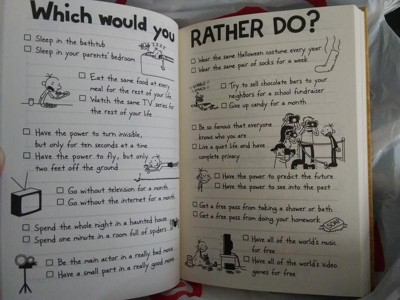 Which would you
Sleep in the bathtub
Sleep in your parents' bedroom
Eat the same food at every
meal for the rest of your life
Watch the same TV series for
the rest of your life
Have the power to turn invisible,
but only for ten seconds at a time
Have the power to fly, but only
two feet off the ground
Go without television for a month
Go without the internet for a month
Spend the whole night in a haunted house
Spend one minute in a room full of spiders
Be the main actor in a really bad movie
Have a small part in a really good movie
RATHER DO?
Wear the same Halloween costume every year
Wear the same pair of socks for a week
Try to sell chocolate bars to your
neighbors for a school fundraiser
Give up candy for a month
Be so famous that everyone
knows who you are
Live a quiet life and have
complete privacy
Have the power to predict the future
Have the power to see into the past
Get a free pass from taking a shower or bath
Get a free pass from doing your homework
SOAP
Have all of the world's music
for free
Have all of the world's video
games for free